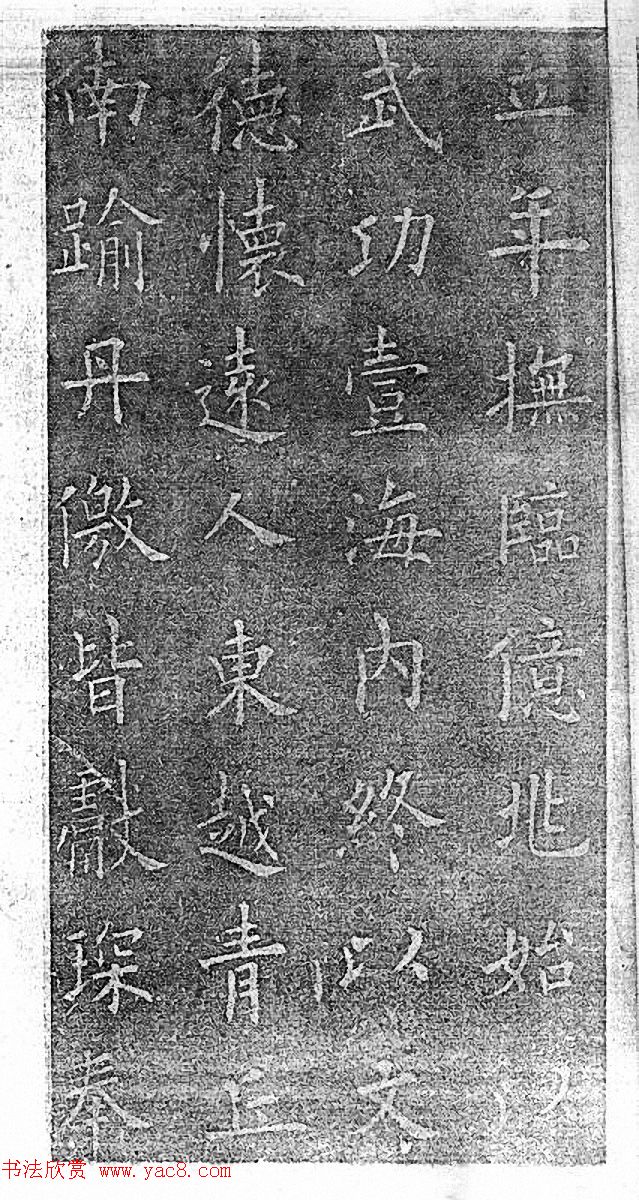 立年撫臨億兆始以
武功壹海内終以文
德懷遠人東越青丘
南踰丹徼皆獻琛奉
书法欣赏 www.yac8.com